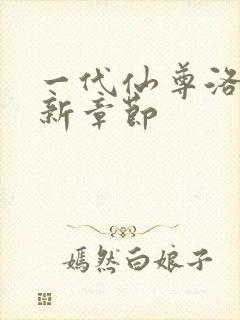 一代仙尊洛
新章节
嫣然白娘子